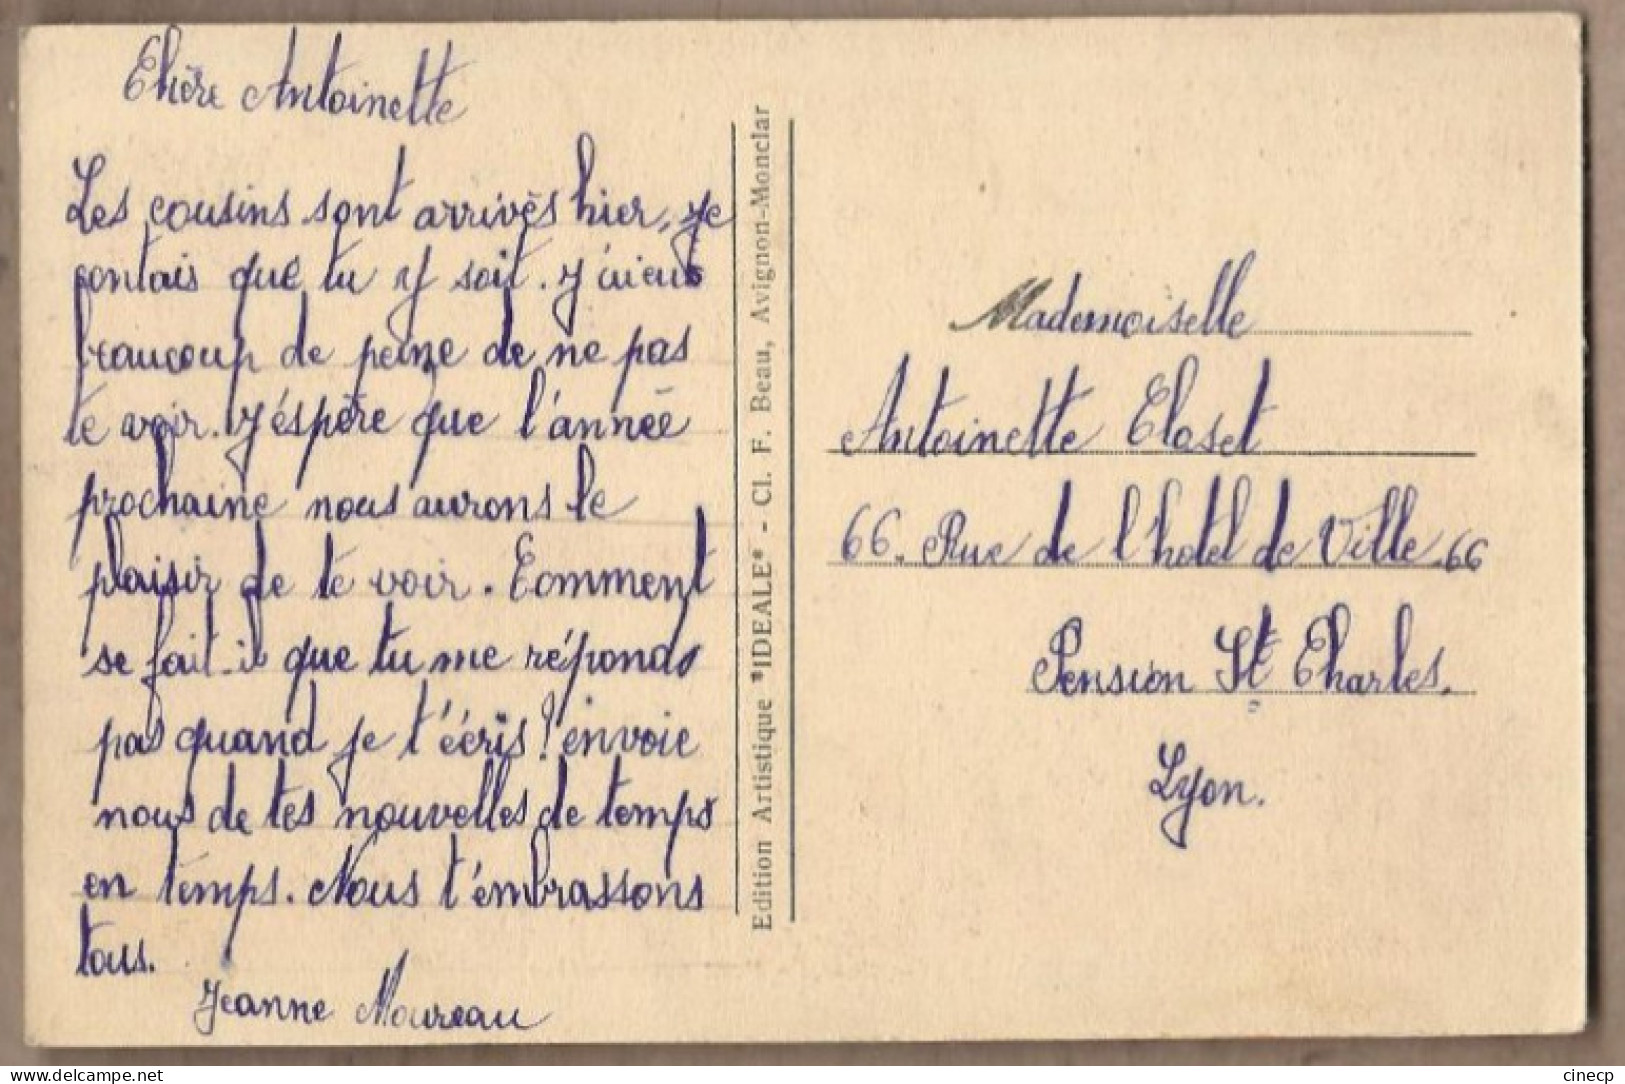 Chère Antoinette
Les cousins sont arrivés hier, je
contais que tu y soit. J'ai eut
beaucoup de peine de ne pas
te voir. J'éspère que l'année
prochaine nous aurons le
plaisir de te voir. Comment
se fait-il que tu me réponds
pas quand je t'écris! envoie
nous de tes nouvelles de temps
en temps. Nous t'embrassons
tous.
Jeanne Moureau
Edition Artistique "IDEALE" - Cl. F. Beau, Avignon-Monclar
Mademoiselle
Antoinette Closet
66. Rue de l'hotel de Ville. 66
Pension St Charles.
Lyon.
https://www.delcampe.net
cinecp